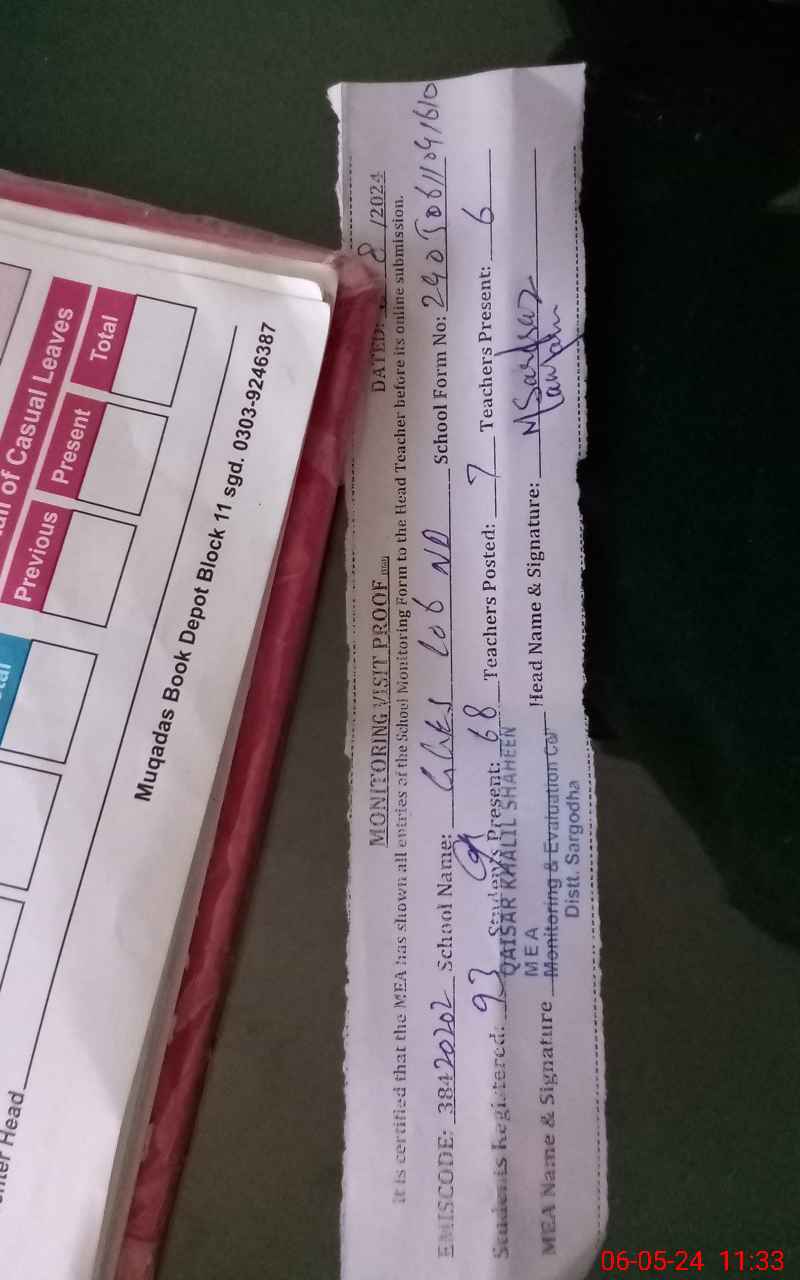 all of Casual Leaves
Previous Present Total
Muqadas Book Depot Block 11 sgd. 0303-9246387
Head
MONITORING VISIT PROOF
DATED: 8 /2024
It is certified that the MEA has shown all entries of the School Monitoring Form to the Head Teacher before its online submission.
EMISCODE: 38420202 School Name: 106 NB School Form No:
Students Registered: 93 Students Present: 68 Teachers Posted: 7 Teachers Present: 6
QAISAR KHALIL SHAHEEN
MEA
MEA Name & Signature Head Name & Signature: M Sarfraz
Monitoring & Evaluation
Distt. Sargodha
06-05-24 11:33